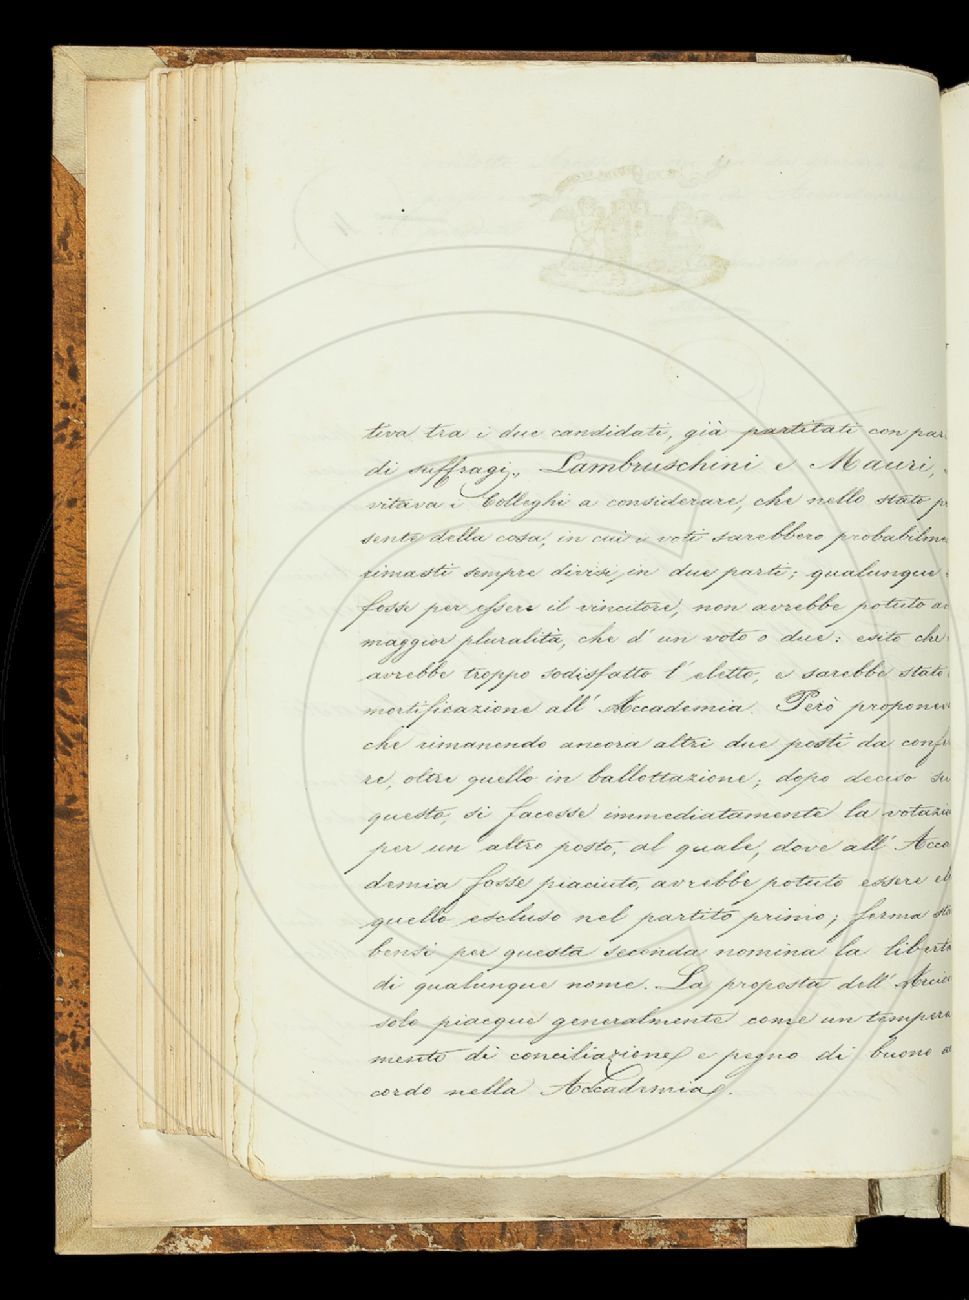 tiva tra i due candidati, già partitati con par
di suffragi, Lambruschini e Mauri,
vitava i Colleghi a considerare, che nello stato pr
sente della cosa, in cui i voti sarebbero probabilme
rimasti sempre divisi in due parti; qualunque
fosse per essere il vincitore, non avrebbe potuto a
maggior pluralità, che d'un voto o due: esito che
avrebbe troppo sodisfatto l'eletto, e sarebbe stato
mortificazione all'Accademia. Però propone
che rimanendo ancora altri due posti da confe
re, oltre quello in ballottazione; dopo deciso su
questo, si facesse immediatamente la votazio
per un altro posto, al quale, dove all'Acca
demia fosse piaciuto, avrebbe potuto essere el
quello escluso nel partito primo; ferma sta
bensì per questa seconda nomina la libertà
di qualunque nome. La proposta dell'Arcico
solo piacque generalmente come un tempera
mento di conciliazione e pegno di buono a
cordo nella Accademia.